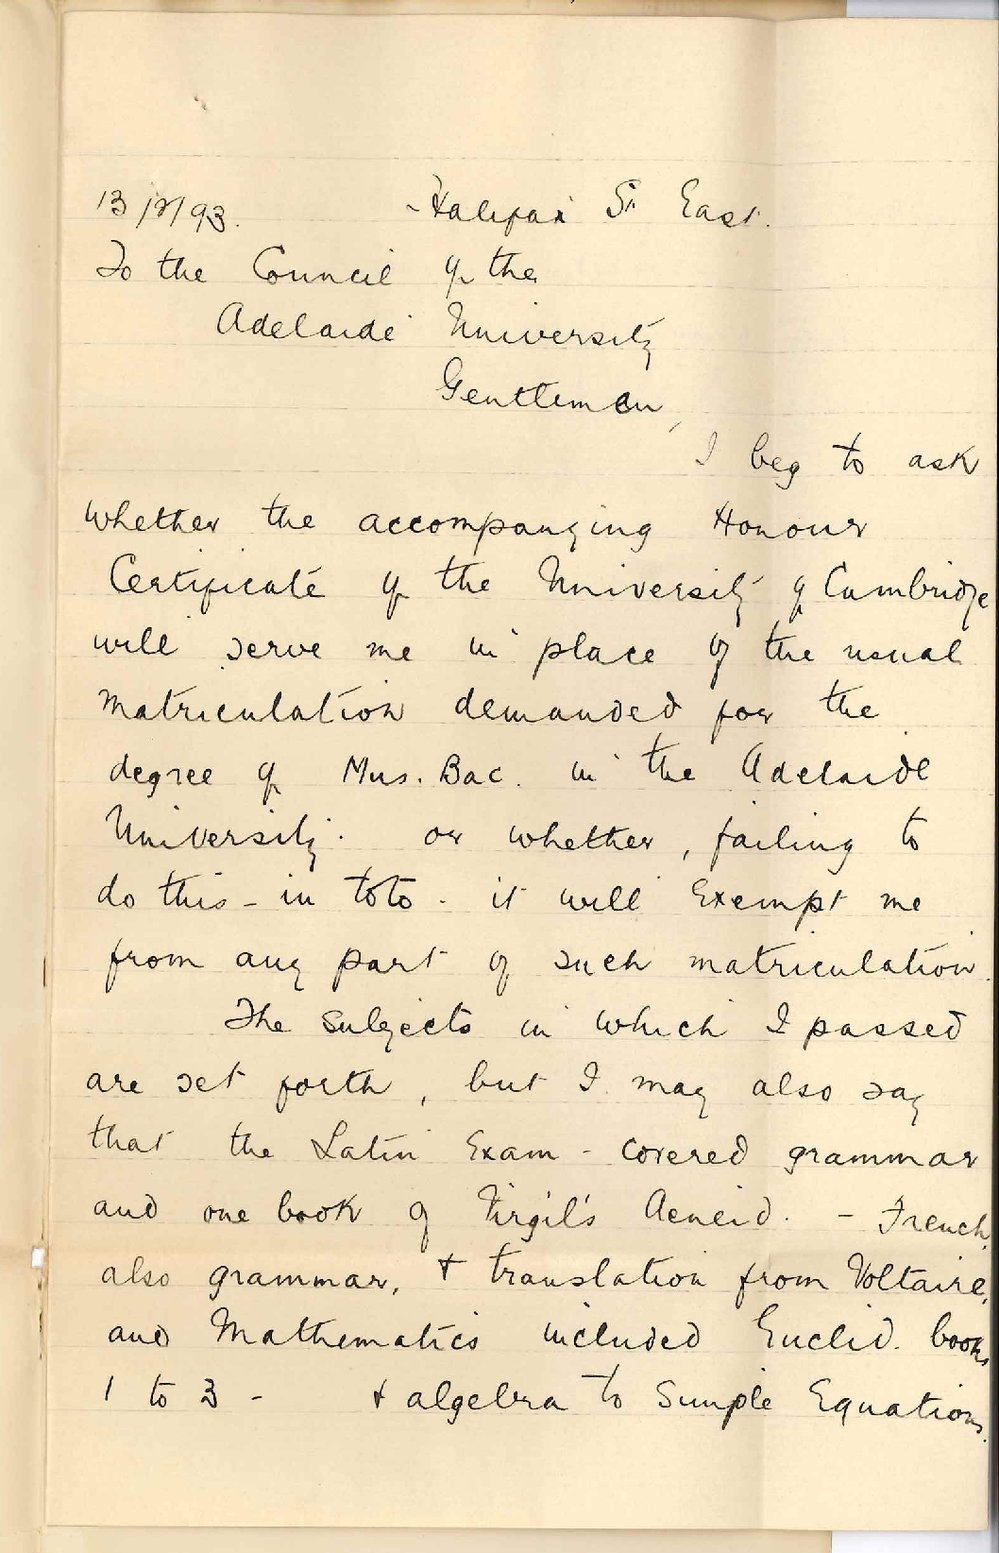 13/2/93. Halifax St East.
To the Council of the
Adelaide University
Gentlemen,
I beg to ask
whether the accompanying Honour
Certificate of the University of Cambridge
will serve me in place of the usual
matriculation demanded for the
degree of Mus. Bac. in the Adelaide
University. or whether, failing to
do this - in toto - it will exempt me
from any part of such matriculation.
The subjects in which I passed
are set forth, but I may also say
that the Latin Exam - covered grammar
and one book of Virgil's Aeneid. - French,
also grammar, + translation from Voltaire,
and Mathematics included Euclid. books
1 to 3 - + algebra to Simple Equations.